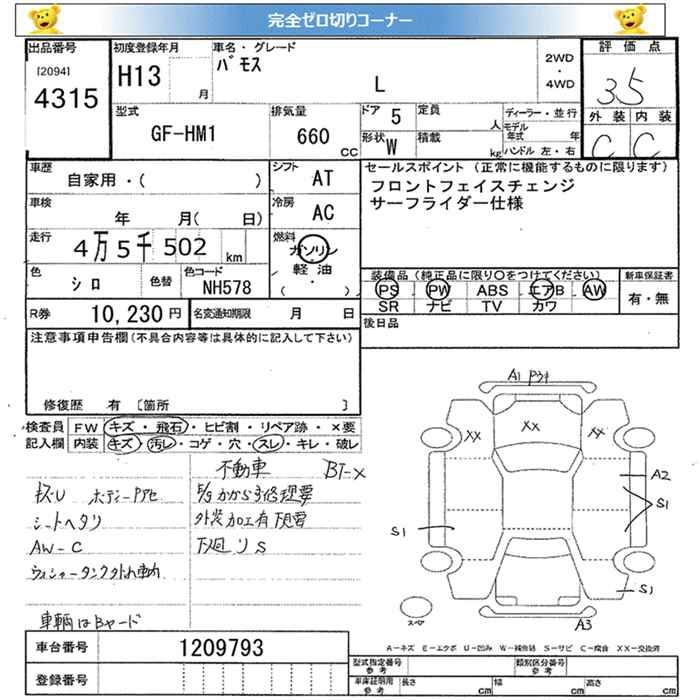 完全ゼロ切りコーナー
出品番号
[2094]
4315
初度登録年月
H13
月
車名・グレード
バモス
L
2WD
・
4WD
評価点
3.5
外装 内装
C C
型式
GF-HM1
排気量
660
CC
ドア 5
定員
人
形状 W
積載
kg
ディーラー・並行
モデル年式
年
ハンドル 左・右
車歴
自家用・( )
シフト
AT
車検
年 月( 日)
冷房
AC
走行
4万5千502
km
燃料
ガソリン
・
軽油
( )
色
シロ
色替
色コード
NH578
R券
10,230 円
名変通知期限
月 日
セールスポイント (正常に機能するものに限ります)
フロントフェイスチェンジ
サーフライダー仕様
装備品(純正品に限り○をつけてください)
PS PW ABS エアB AW
SR ナビ TV カワ
新車保証書
有・無
後日品
注意事項申告欄(不具合内容等は具体的に記入して下さい)
修復歴 有 [箇所 ]
検査員
記入欄
FW キズ・飛石・ヒビ割・リペア跡・×要
内装 キズ・汚レ・コゲ・穴・スレ・キレ・破レ
不動車 BT-×
シートヘタリ
AW-C
下廻りS
車輌はBヤード
A1
XX
XX
XX
A2
S1
S1
S1
A3
スペア
A-キズ E-エクボ U-凹み W-補修跡 S-サビ C-腐食 XX-交換済
車台番号
1209793
登録番号
型式指定番号
参考
類別区分番号
参考
車庫証明用
参考
長さ
cm
幅
cm
高さ
cm